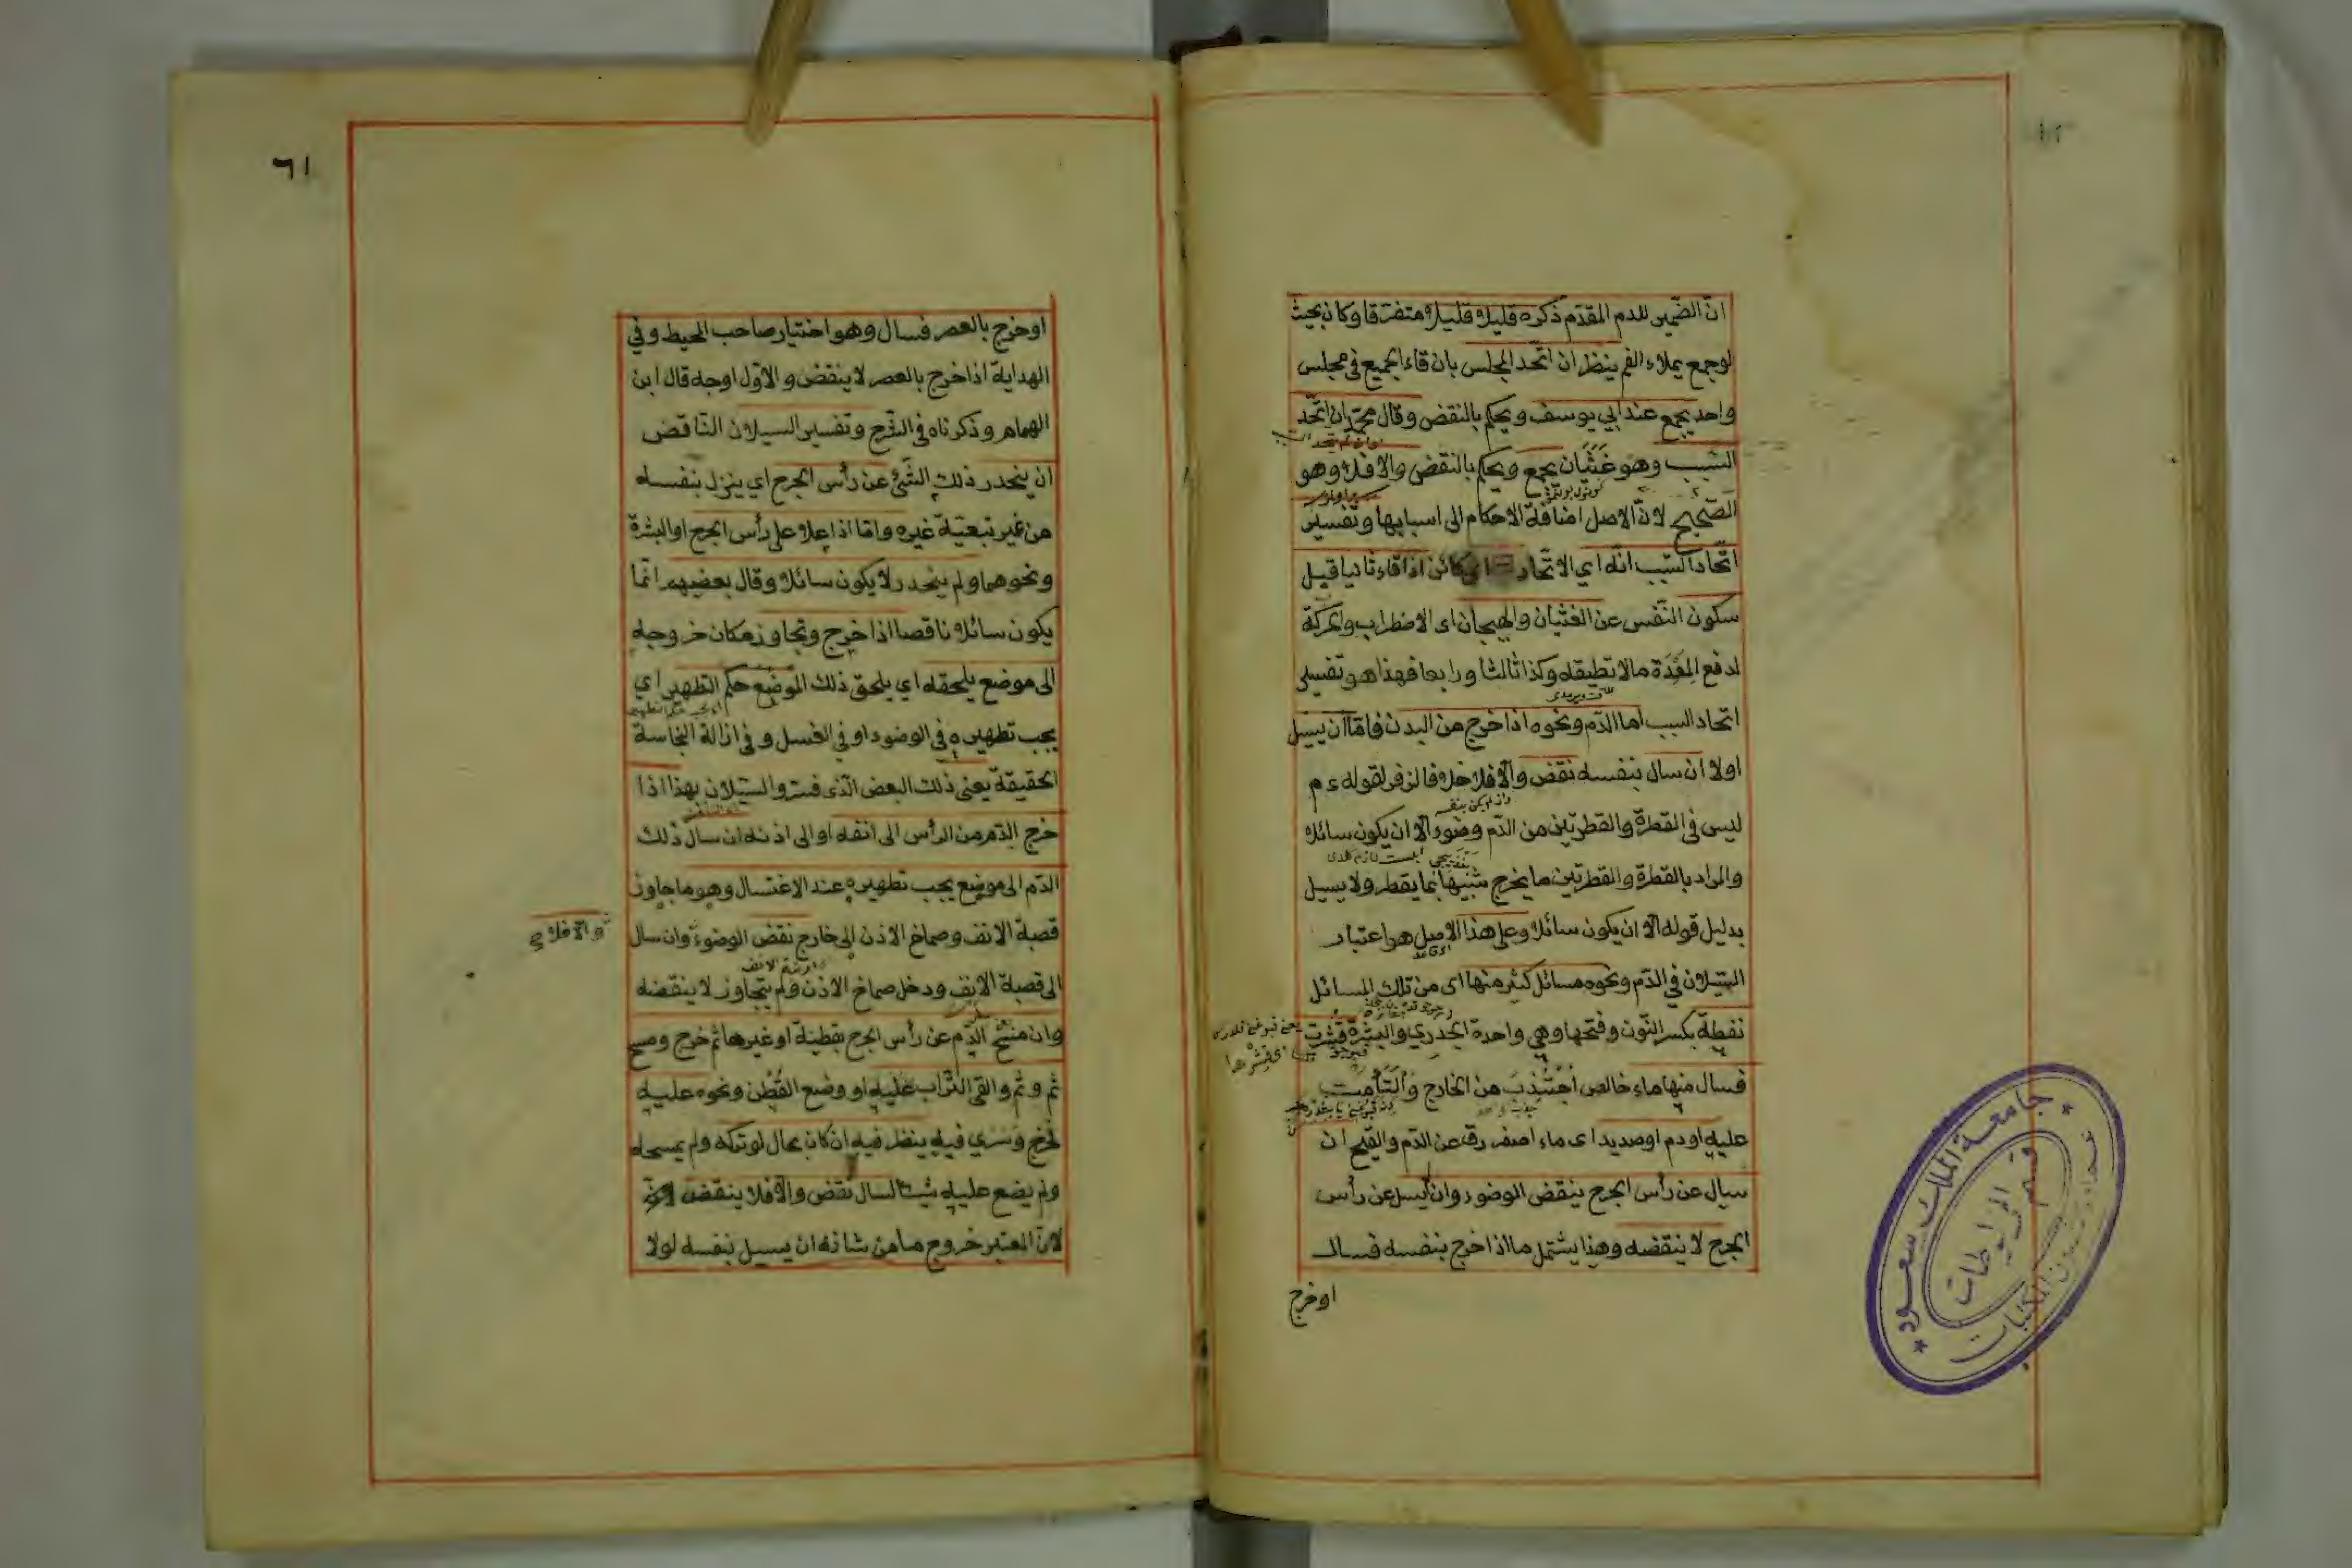 ان الضمير للدم المقدم ذكره قليلا قليلا متفرقا وكان بحيث
لوجمع يملاء الفم ينظر ان اتحد المجلس بان قاء الجميع فى مجلس
واحد يجمع عند ابي يوسف ويحكم بالنقض وقال محمد ان اتحد
السبب وهو غَثَيَان يجمع ويحكم بالنقض والا فلا وهو
الصحيح لان الاصل اضافة الاحكام الى اسبابها وتفسير
اتحاد السبب انه اي الاتحاد كائن اذا قاء ثانيا قبل
سكون النفس عن الغثيان والهيجان اى الاضطراب والحركة
لدفع المِعْدَة مالا تطيقه وكذا ثالثا ورابعا فهذا هو تفسير
اتحاد السبب اما الدم ونحوه اذا خرج من البدن فاما ان يسيل
اولا ان سال بنفسه نقض والا فلا خلافا لزفر لقوله ءم
ليس فى القطرة والقطرتين من الدم وضوء الا ان يكون سائلا
والمراد بالقطرة والقطرتين ما يخرج شبيها بما يقطر ولا يسيل
بدليل قوله الا ان يكون سائلا وعلى هذا الاصل هو اعتبار
السيلان في الدم ونحوه مسائل كثيرة منها اى من تلك المسائل
نفطة بكسر النون وفتحها وهي واحدة الجدري والبثرة قشرت
فسال منها ماء خالص اجتُذِبَ من الخارج والتأمت
عليه او دم او صديد اى ماء اصفر رق عن الدم والقيح ان
سال عن رأس الجرح ينقض الوضوء وان لم يسل عن رأس
الجرح لا ينقضه وهذا يشتمل ما اذا خرج بنفسه فسال
او خرج
٦١
او خرج بالعصر فسال وهو اختيار صاحب المحيط وفي
الهداية اذا خرج بالعصر لا ينقض والاول اوجه قال ابن
الهمام وذكرناه فى الشرح وتفسير السيلان الناقض
ان ينحدر ذلك الشئ عن رأس الجرح اي ينزل بنفسه
من غير تبعية غيره واما اذا علا على رأس الجرح او البثرة
ونحوهما ولم ينحدر لا يكون سائلا وقال بعضهم انما
يكون سائلا ناقصا اذا خرج وتجاوز مكان خروجه
الى موضع يلحقه اي يلحق ذلك الموضع حكم التطهير اي
يجب تطهيره في الوضوء او في الغسل وفى ازالة النجاسة
الحقيقة يعنى ذلك البعض الذى فسر والسيلان بهذا اذا
خرج الدم من الرأس الى انفه او الى اذنه ان سال ذلك
الدم الى موضع يجب تطهيره عند الاغتسال وهو ما جاوز
قصبة الانف وصماخ الاذن الى خارج نقض الوضوء وان سال
والا فلا
الى قصبة الانف ودخل صماخ الاذن ولم يتجاوز لا ينقضه
وان مسح الدم عن رأس الجرح بقطنة او غيرها ثم خرج ومسح
ثم وثم والقى التراب عليه او وضع القُطْن ونحوه عليه
فخرج وسَرَي فيه ينظر فيه ان كان بحال لو تركه ولم يمسحه
ولم يضع عليه شيئا لسال نقض والا فلا ينقض
لان المعتبر خروج ما من شانه ان يسيل بنفسه لولا
جامعة الملك سعود
قسم المخطوطات